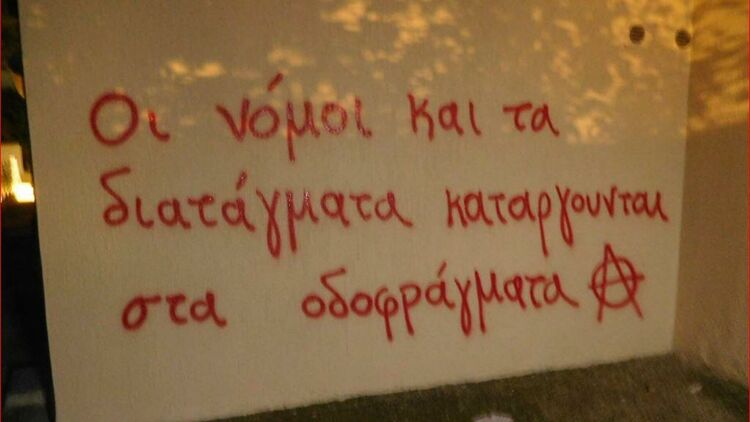 Οι νόμοι και τα
διατάγματα καταργουνται
στα οδοφράγματα Ⓐ